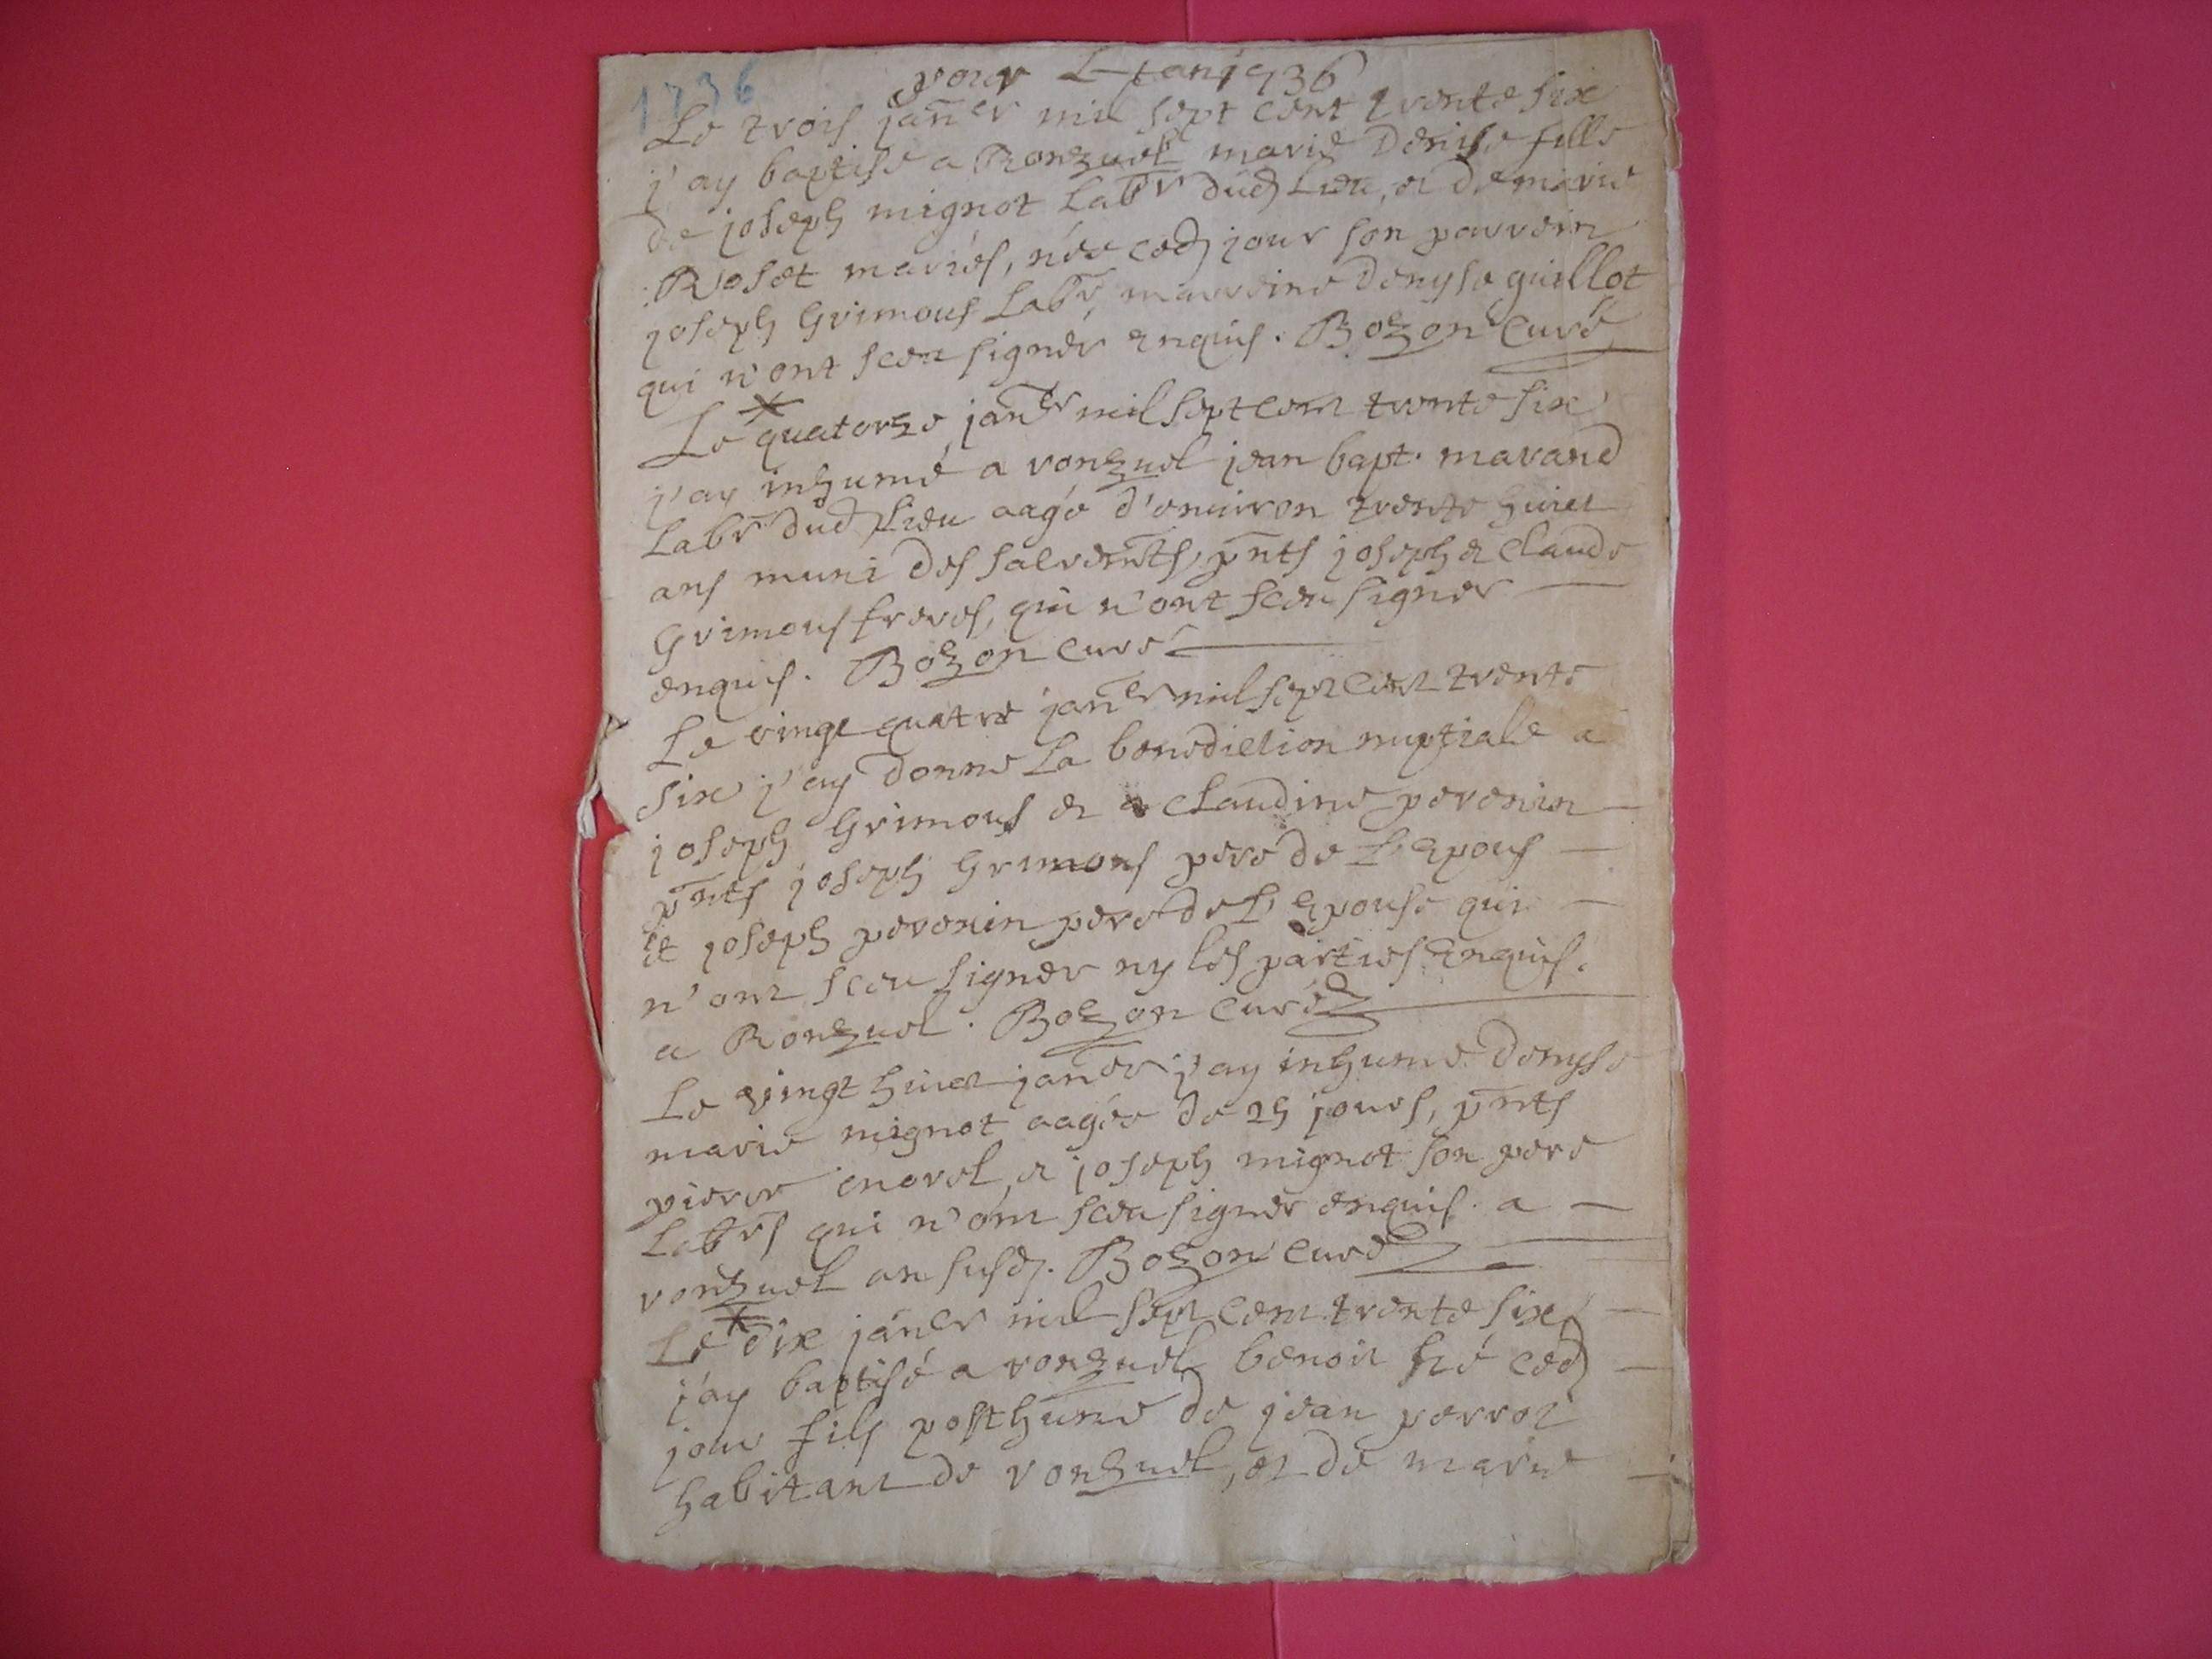 1736
pour L'an 1736
Le trois jan̄er mil sept cent trente six
j'ay baptisé a Ronzuel marie Denise fille
de joseph mignot Labr dud Lieu, et de marie
Roset mariés, née ced jour son parrein
joseph Grimous Labr, marreine Denyse guillot
qui n'ont sceu signer enquis. Bozon Curé
Le quatorze jan̄er mil sept cent trente six
j'ay inhumé a ronzuel jean bapt. marand
Labr dud Lieu aagé d'environ trente huict
ans muni des sacrem̄ts, pn̄ts joseph et Claude
Grimous freres, qui n'ont sceu signer
enquis. Bozon Curé
Le vingt quatre jan̄er mil sept cent trente
six j'ay donné La benediction nuptiale a
joseph Grimous et a Claudine perenin
pn̄ts joseph Grimous pere de L'Epous
et joseph perenin pere de L'Epouse qui
n'ont sceu signer ny les parties Enquis.
a Ronzuel. Bozon Curé
Le vingt huict jan̄er j'ay inhumé Denyse
marie mignot aagée de 25 jours, pn̄ts
pierre morel, et joseph mignot son pere
Labrs qui n'ont sceu signer enquis. a
ronzuel an susd. Bozon Curé
Le dix jan̄er mil sept cent trente six
j'ay baptisé a ronzuel benoit né ced
jour fils posthume de jean perrot
habitant de ronzuel, et de marie